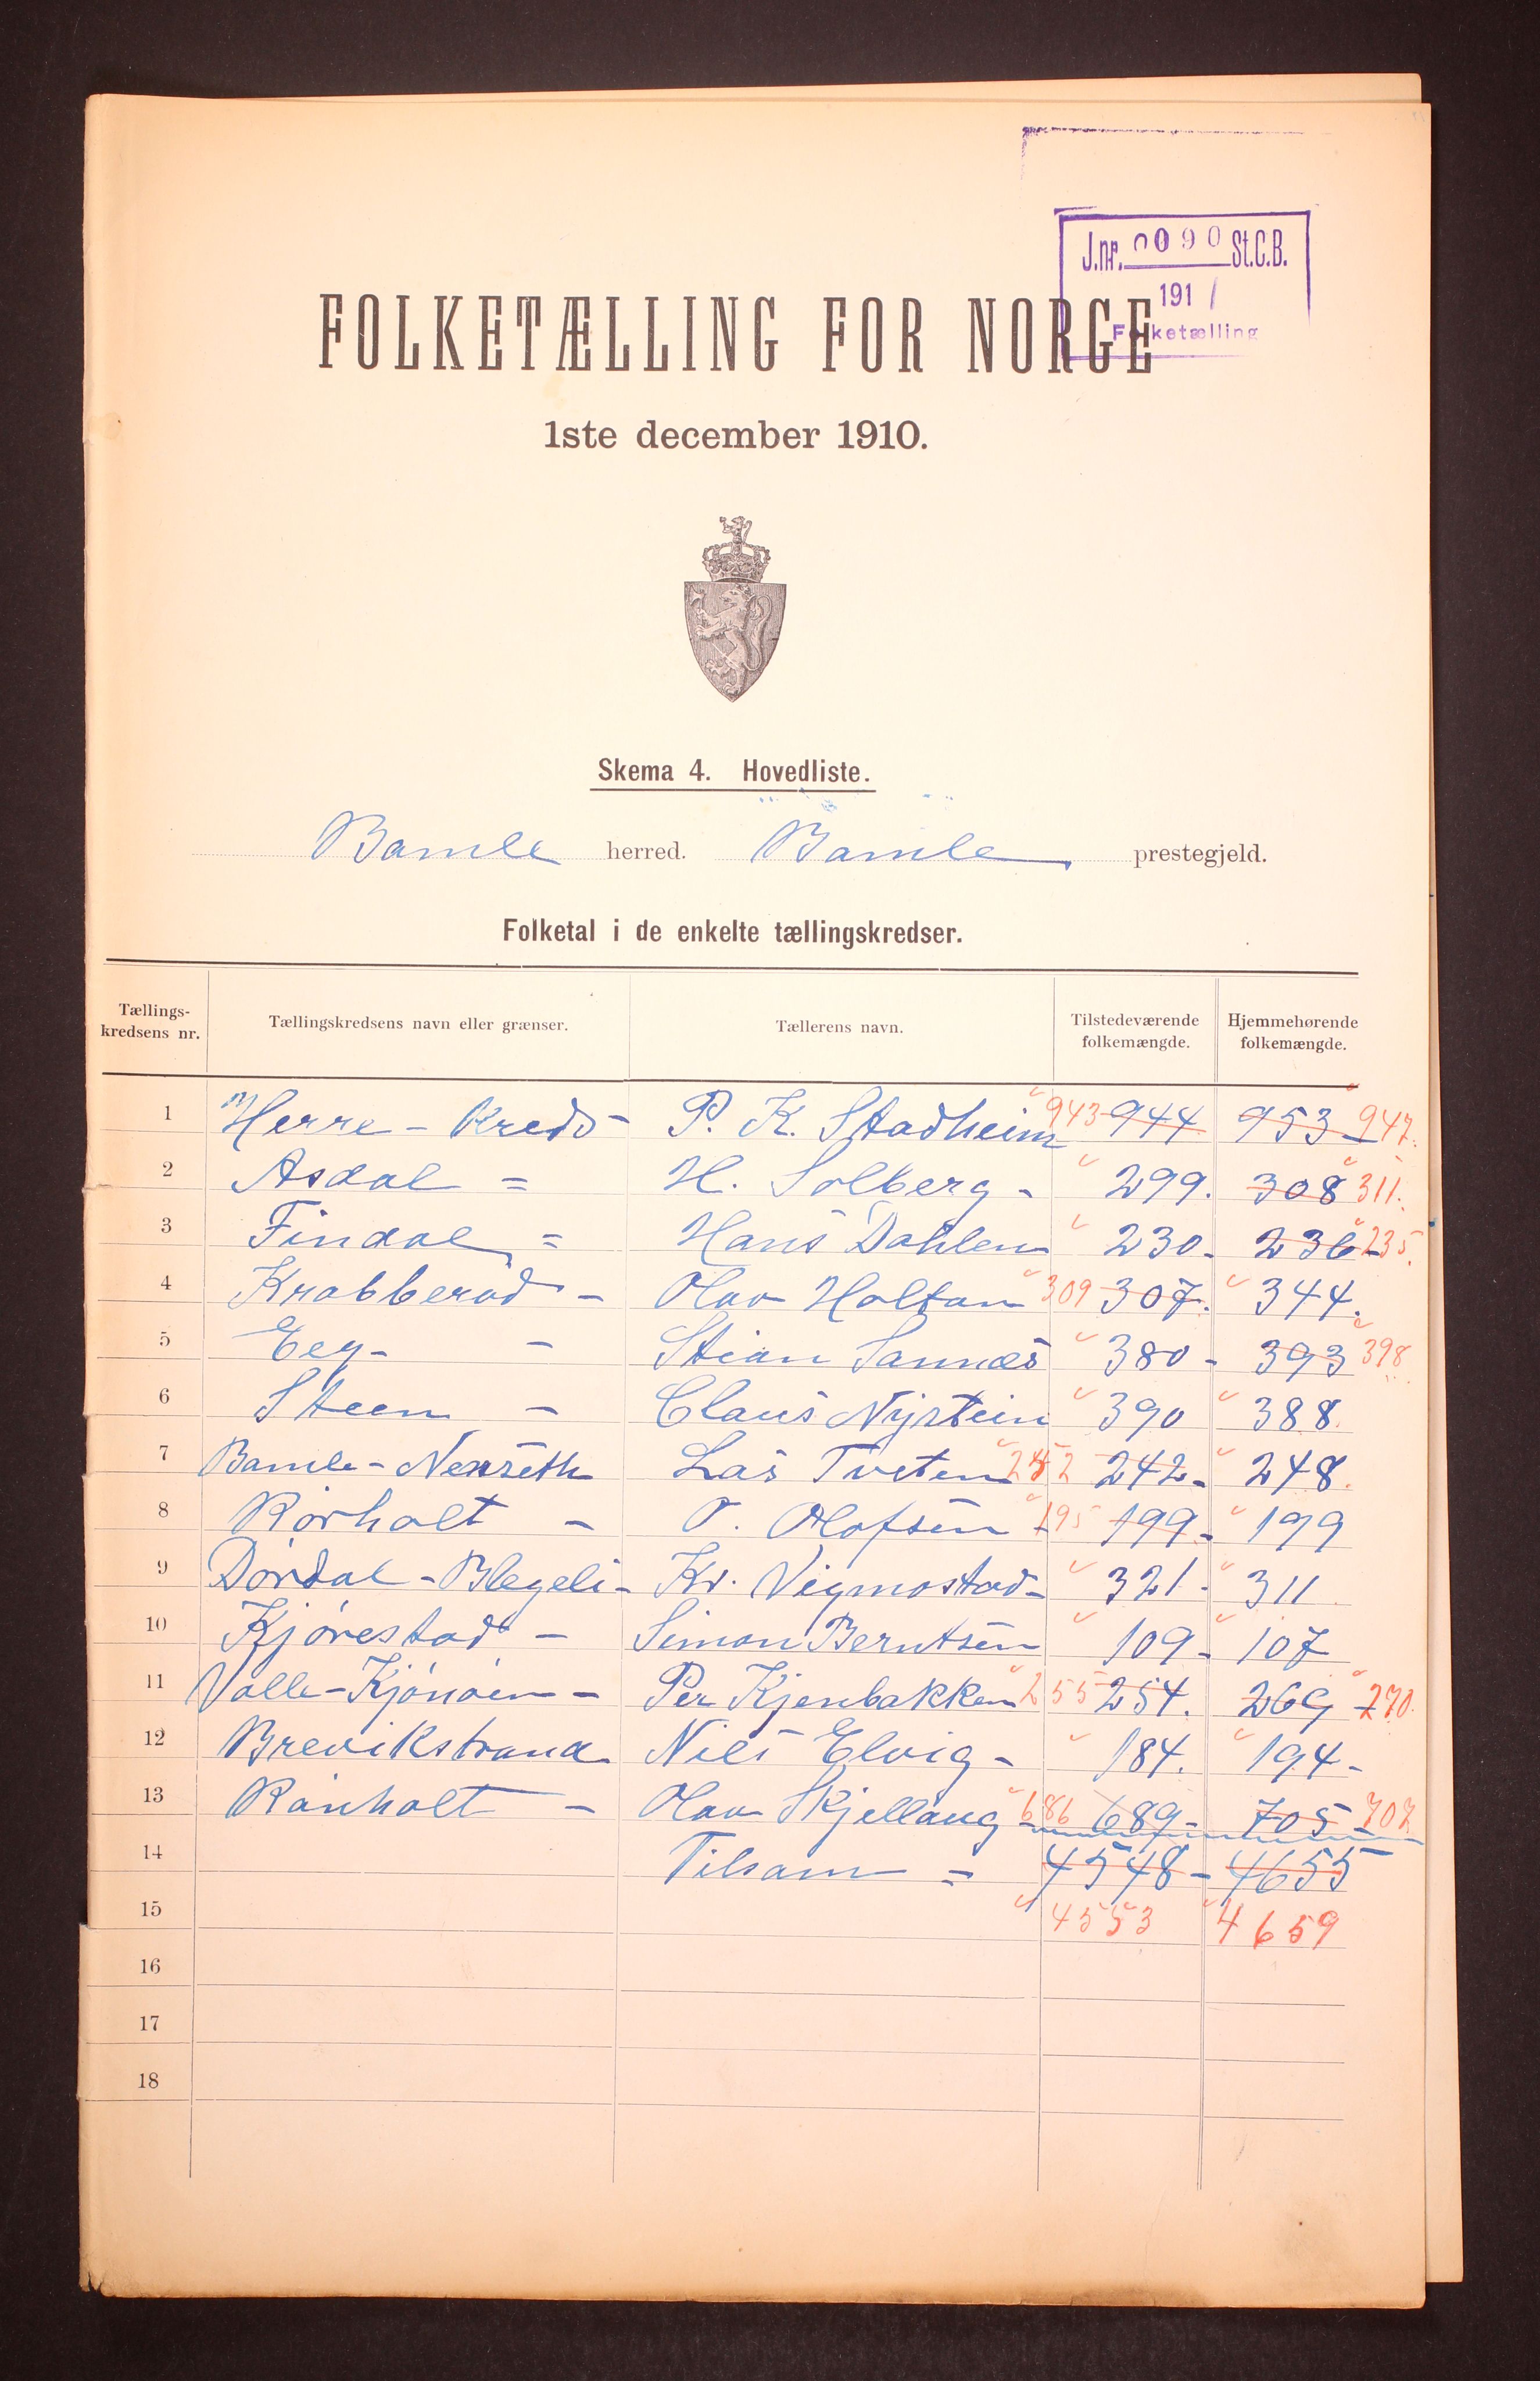 J.nr. 0090 St.C.B.
191 /
Folketælling
FOLKETÆLLING FOR NORGE
1ste december 1910.
Skema 4. Hovedliste.
Bamle herred. Bamle prestegjeld.
Folketal i de enkelte tællingskredser.
Tællings-kredsens nr. Tællingskredsens navn eller grænser. Tællerens navn. Tilstedeværende folkemængde. Hjemmehørende folkemængde.
1 Herre - Kreds - P. K. Stadheim 943 944 953 - 947.
2 Asdal = H. Solberg - 299. 308 311.
3 Findal = Hans Dahlen 230 - 236 - 235.
4 Krabberød - Olav Holtan 309 307. 344.
5 Eeg - - Stian Sannes 380 - 393 398
6 Steen - Claus Nystein 390 388.
7 Bamle - Las Tveten 242 - 248.
8 Rørholt - O. Olofsen - 195 199 - 199
9 Dørdal - Blegeli - Kr. Vigmostad - 321 - 311
10 Kjørestad - Simon Berntsen 109 - 107
11 Valle - Kjønøen - Per Kjenbakken 255 254. 269 - 270.
12 Brevikstrand Nils Elvig - 184. 194 -
13 Rønholt - Olav Skjellaug - 686 689 - 705 - 707
14 Tilsam = 4548 - 4655
15 4553 4659
16
17
18